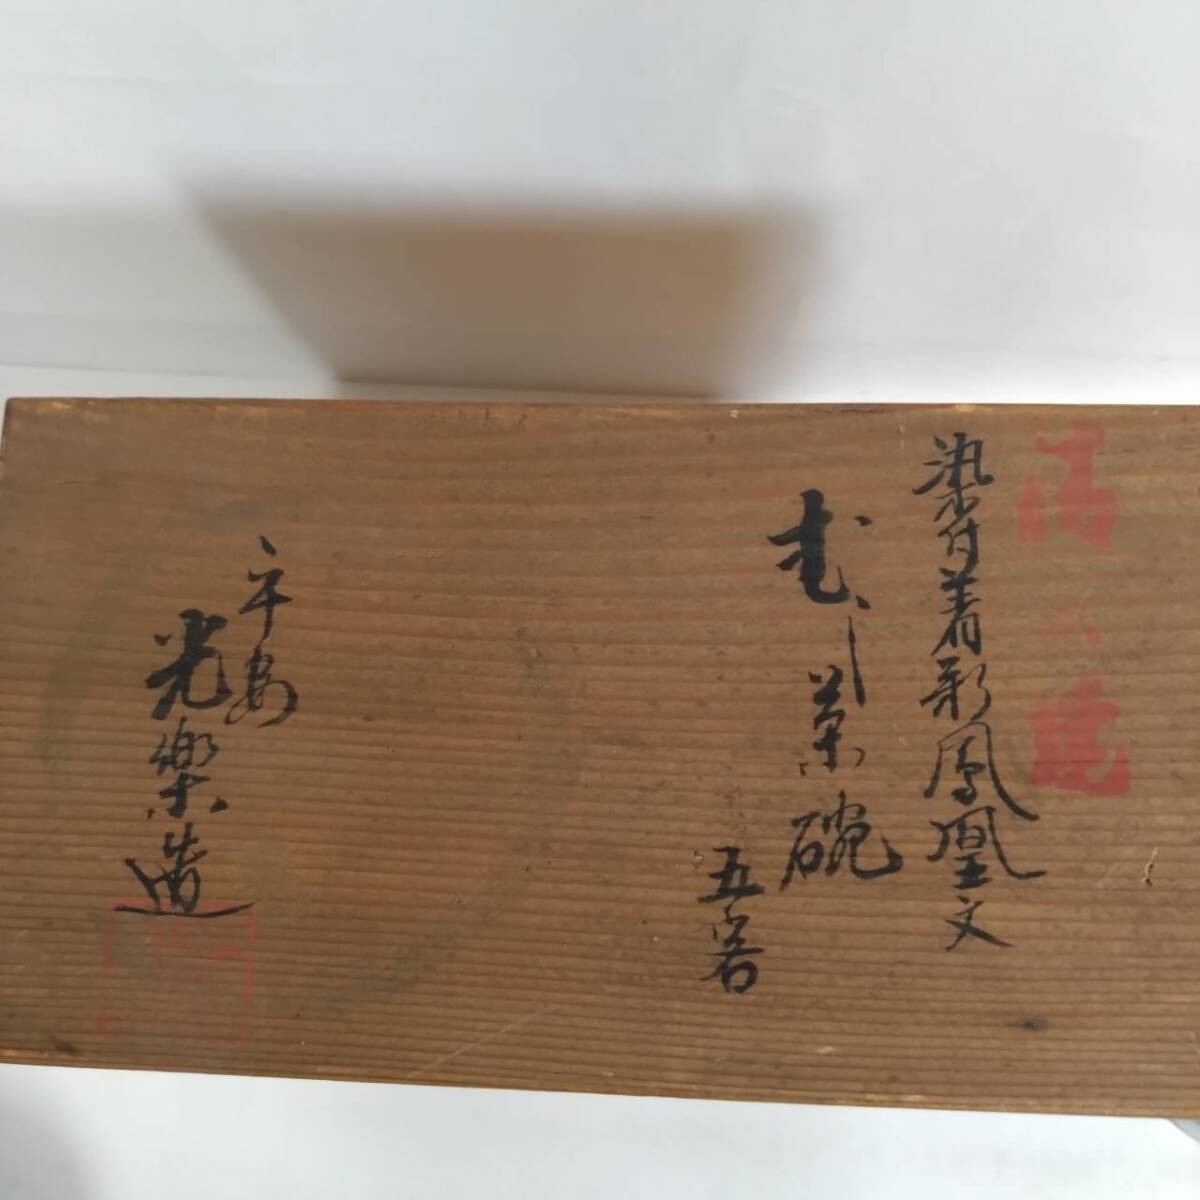 清水焼
染付着彩鳳凰文
むし茶碗
五客
平安
光樂造